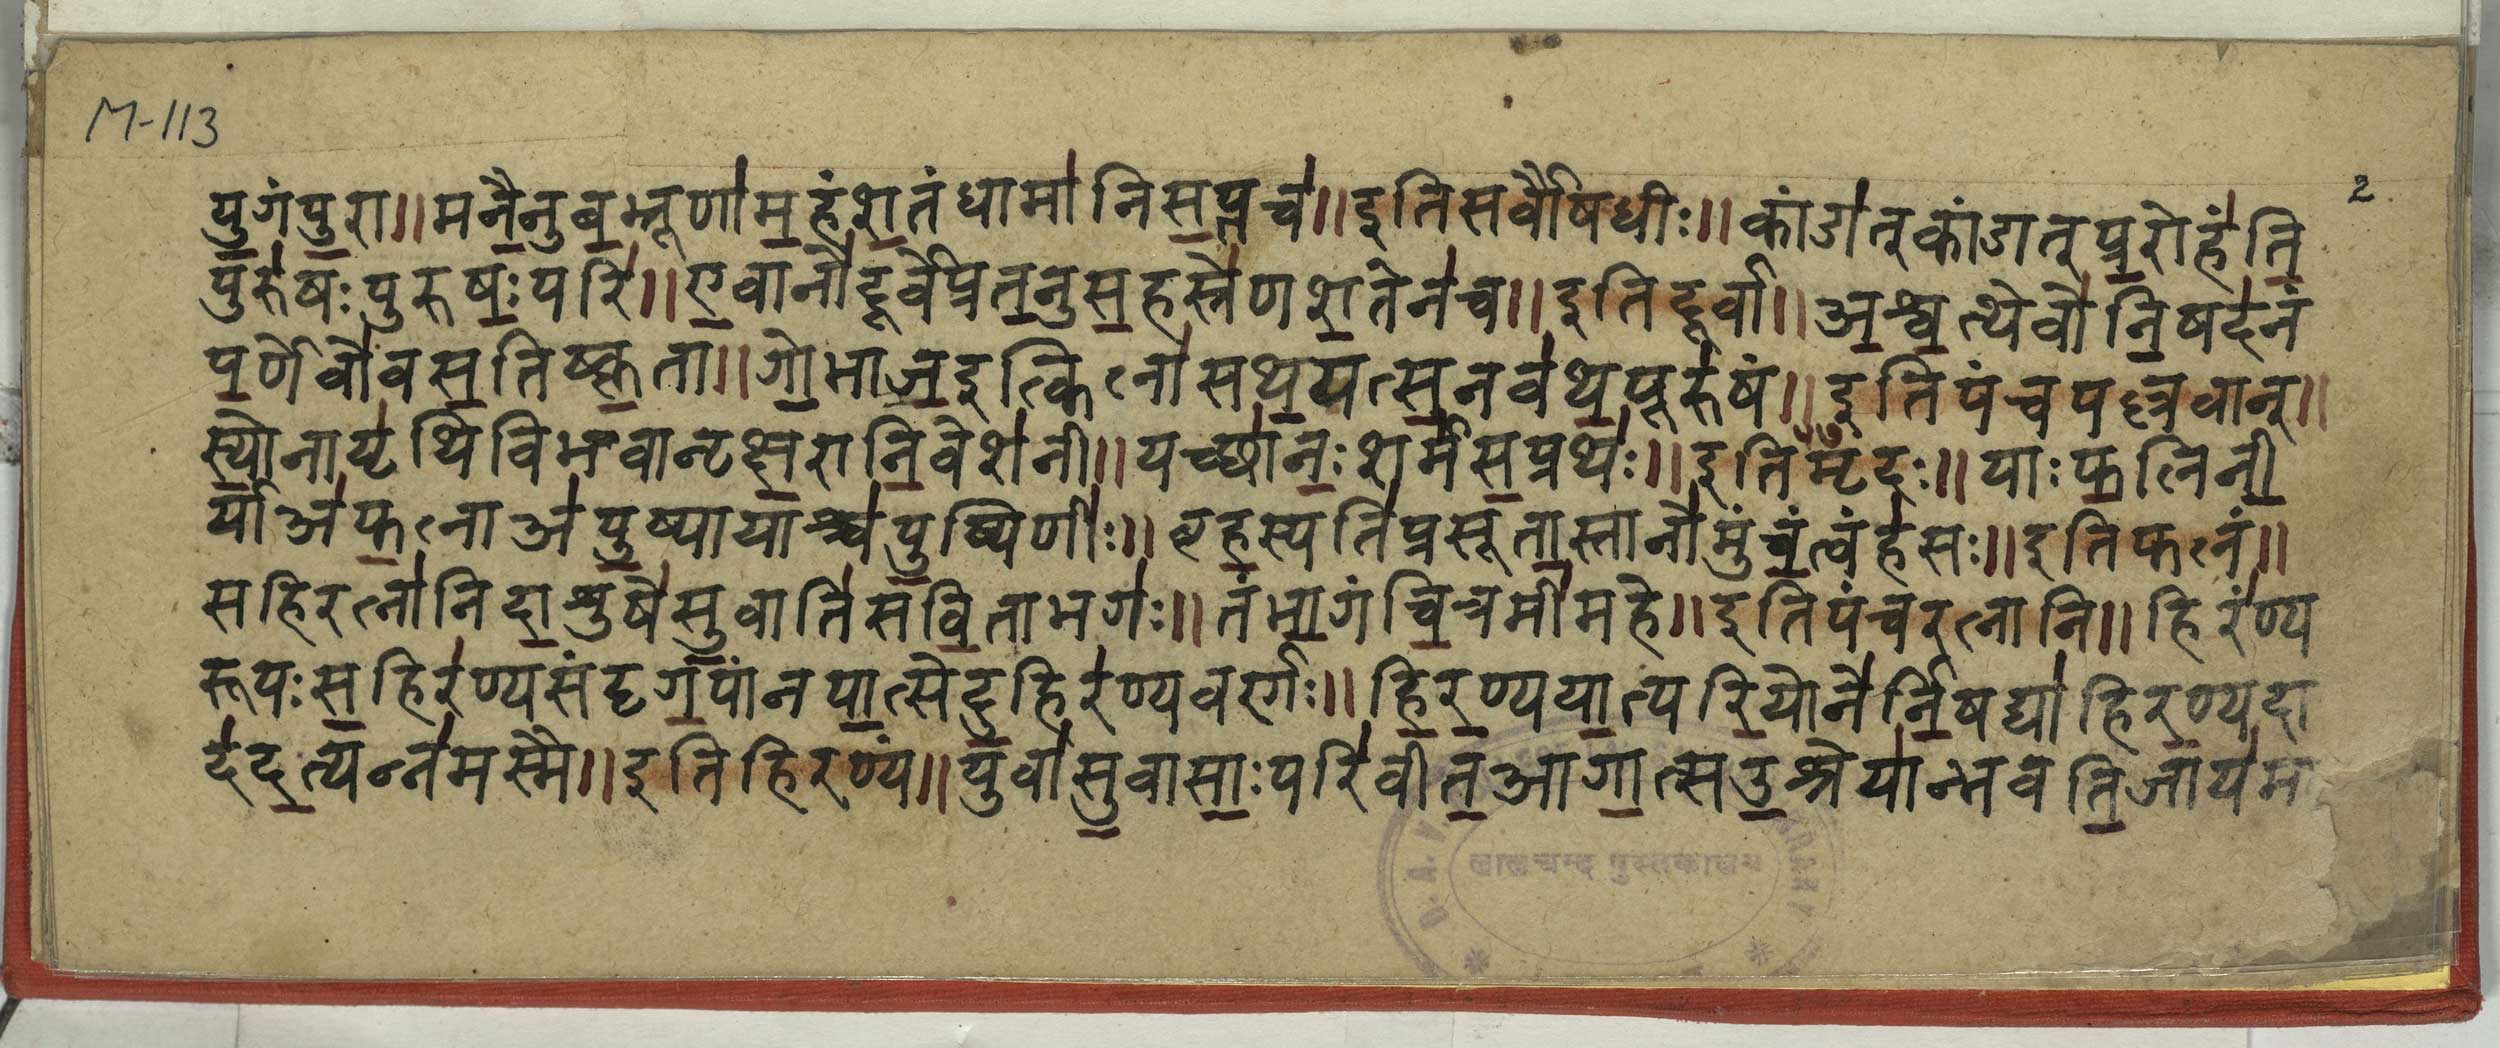 M-113
2
युगंपुरा॥मनैनुबभ्रूणामहंशतंधामानिसप्तच॥इतिसर्वौषधीः॥कांडात्कांडात्प्ररोहंति
पुरुषःपुरुषःपरि॥एवानोदूर्वेप्रतनुसहस्रेणशतेनच॥इतिदूर्वा॥अश्वत्थेवोनिषदनं
पर्णेवोवसतिष्कृता॥गोभाजइत्किलासथयत्सनवथपूरुषं॥इतिपंचपल्लवान्॥
स्योनापृथिविभवानृक्षरानिवेशनी॥यच्छानःशर्मसप्रथः॥इतिमृदः॥याःफलिनी
र्याअफलाअपुष्पायाश्चपुष्पिणीः॥बृहस्पतिप्रसूतास्तानोमुंचंत्वंहसः॥इतिफलं॥
सहिरत्नानिदाशुषेसुवातिसविताभगः॥तंभागंचित्रमीमहे॥इतिपंचरत्नानि॥हिरण्य
रूपःसहिरण्यसंदृगपांनपात्सेदुहिरण्यवर्णः॥हिरण्ययात्परियोनेर्निषद्याहिरण्यदा
ददत्यन्नमस्मै॥इतिहिरण्यं॥युवासुवासाःपरिवीतआगात्सउश्रेयान्भवतिजायमा
लालचन्द पुस्तकालय